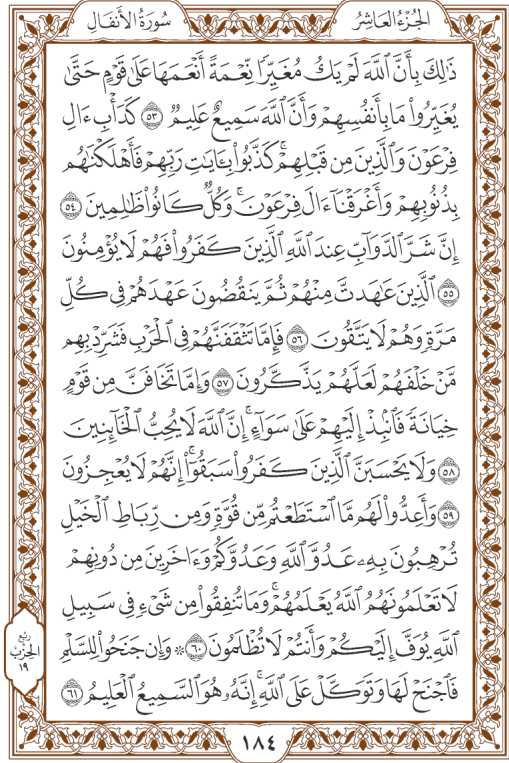 الجُزْءُ العَاشِرُ
سُورَةُ الأَنفَالِ
ذَٰلِكَ بِأَنَّ ٱللَّهَ لَمۡ يَكُ مُغَيِّرٗا نِّعۡمَةً أَنۡعَمَهَا عَلَىٰ قَوۡمٍ حَتَّىٰ
يُغَيِّرُواْ مَا بِأَنفُسِهِمۡ وَأَنَّ ٱللَّهَ سَمِيعٌ عَلِيمٞ ٥٣ كَدَأۡبِ ءَالِ
فِرۡعَوۡنَ وَٱلَّذِينَ مِن قَبۡلِهِمۡۚ كَذَّبُواْ بِـَٔايَٰتِ رَبِّهِمۡ فَأَهۡلَكۡنَٰهُم
بِذُنُوبِهِمۡ وَأَغۡرَقۡنَآ ءَالَ فِرۡعَوۡنَۚ وَكُلّٞ كَانُواْ ظَٰلِمِينَ ٥٤
إِنَّ شَرَّ ٱلدَّوَآبِّ عِندَ ٱللَّهِ ٱلَّذِينَ كَفَرُواْ فَهُمۡ لَا يُؤۡمِنُونَ
٥٥ ٱلَّذِينَ عَٰهَدتَّ مِنۡهُمۡ ثُمَّ يَنقُضُونَ عَهۡدَهُمۡ فِي كُلِّ
مَرَّةٖ وَهُمۡ لَا يَتَّقُونَ ٥٦ فَإِمَّا تَثۡقَفَنَّهُمۡ فِي ٱلۡحَرۡبِ فَشَرِّدۡ بِهِم
مَّنۡ خَلۡفَهُمۡ لَعَلَّهُمۡ يَذَّكَّرُونَ ٥٧ وَإِمَّا تَخَافَنَّ مِن قَوۡمٍ
خِيَانَةٗ فَٱنۢبِذۡ إِلَيۡهِمۡ عَلَىٰ سَوَآءٍۚ إِنَّ ٱللَّهَ لَا يُحِبُّ ٱلۡخَآئِنِينَ
٥٨ وَلَا يَحۡسَبَنَّ ٱلَّذِينَ كَفَرُواْ سَبَقُوٓاْۚ إِنَّهُمۡ لَا يُعۡجِزُونَ
٥٩ وَأَعِدُّواْ لَهُم مَّا ٱسۡتَطَعۡتُم مِّن قُوَّةٖ وَمِن رِّبَاطِ ٱلۡخَيۡلِ
تُرۡهِبُونَ بِهِۦ عَدُوَّ ٱللَّهِ وَعَدُوَّكُمۡ وَءَاخَرِينَ مِن دُونِهِمۡ
لَا تَعۡلَمُونَهُمُ ٱللَّهُ يَعۡلَمُهُمۡۚ وَمَا تُنفِقُواْ مِن شَيۡءٖ فِي سَبِيلِ
ٱللَّهِ يُوَفَّ إِلَيۡكُمۡ وَأَنتُمۡ لَا تُظۡلَمُونَ ٦٠ ۞ وَإِن جَنَحُواْ لِلسَّلۡمِ
فَٱجۡنَحۡ لَهَا وَتَوَكَّلۡ عَلَى ٱللَّهِۚ إِنَّهُۥ هُوَ ٱلسَّمِيعُ ٱلۡعَلِيمُ ٦١
ربع
الحزب
١٩
١٨٤